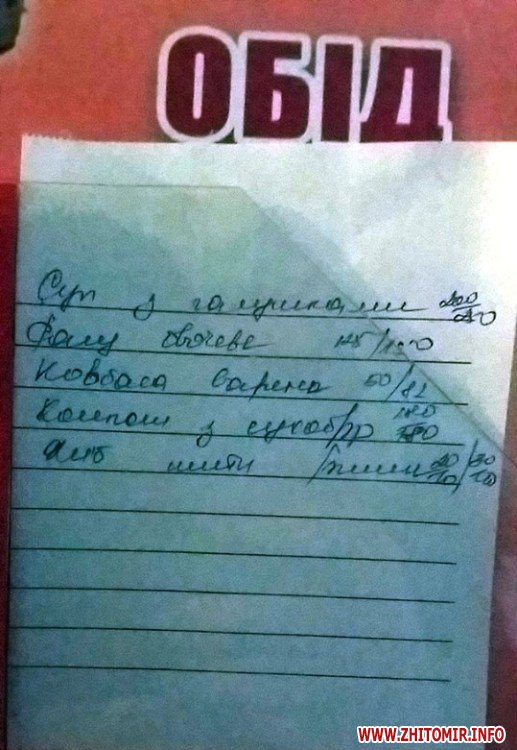 ОБІД
Суп з галушками 200/250
Рагу овочеве 125/150
Ковбаса варена 50/82
Компот з сухофр 180
Хліб
WWW.ZHITOMIR.INFO